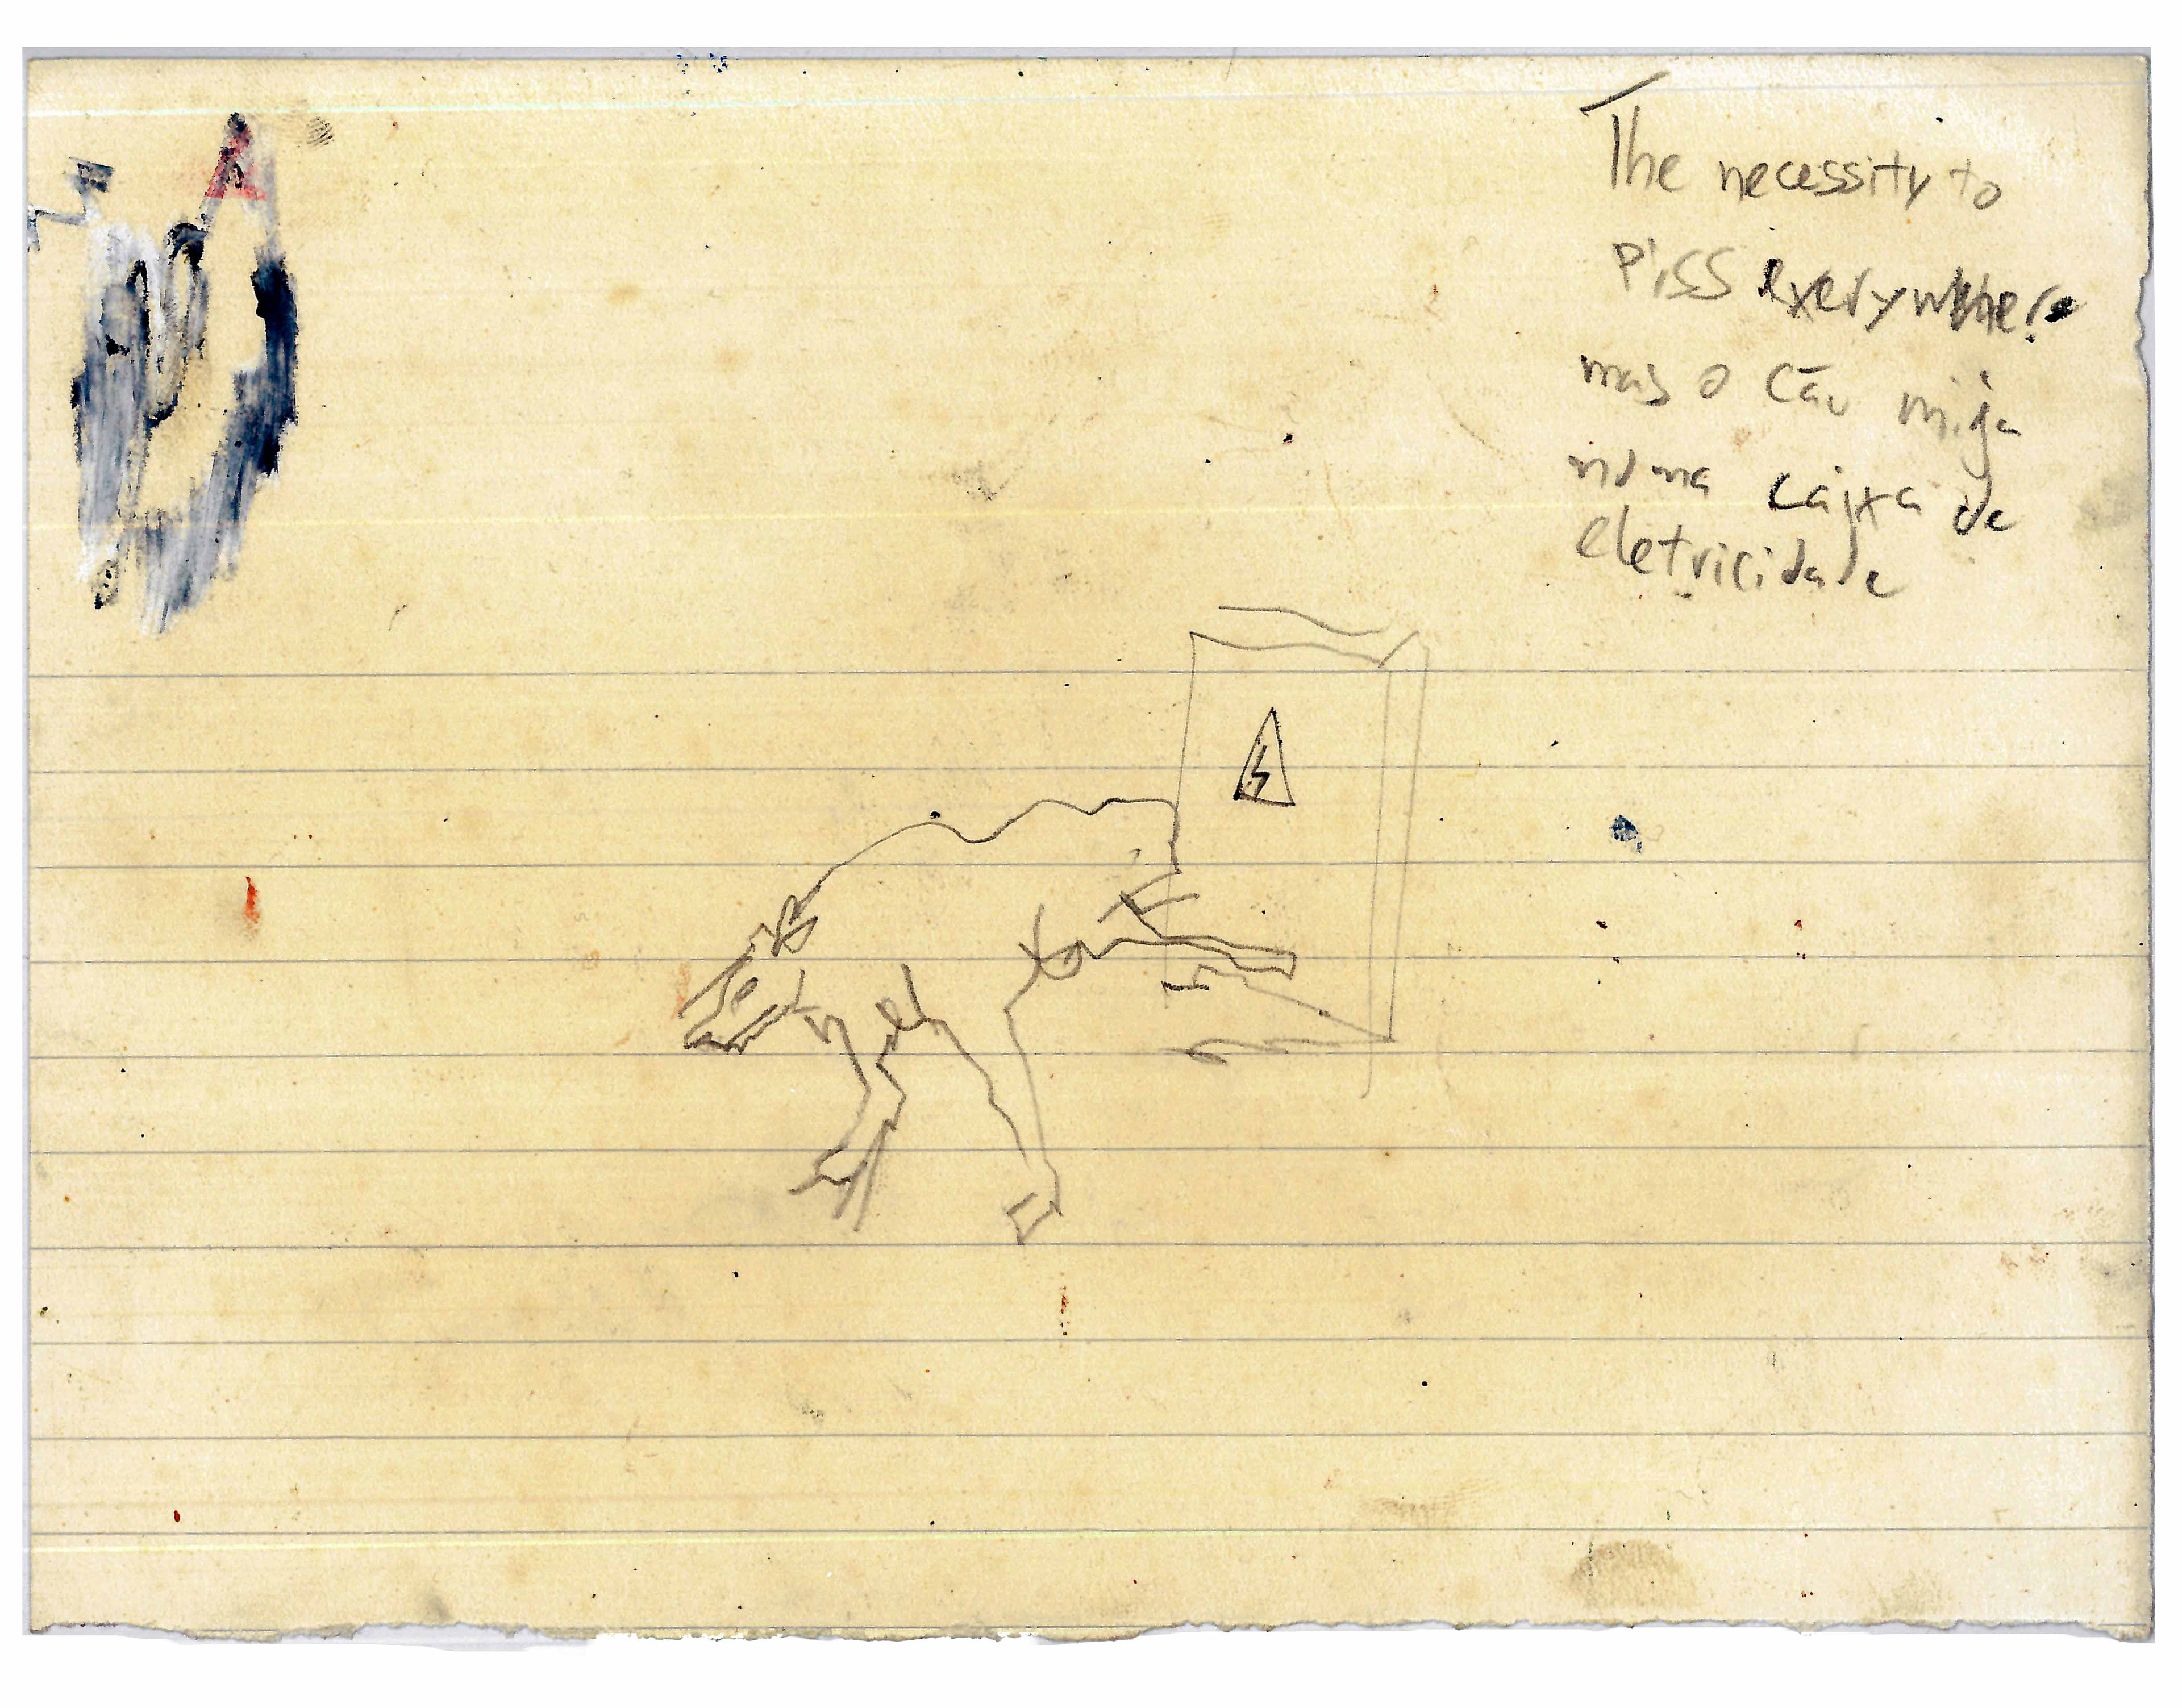 The necessity to
piss everywhere
mas o cão mija
numa caixa de
eletricidade